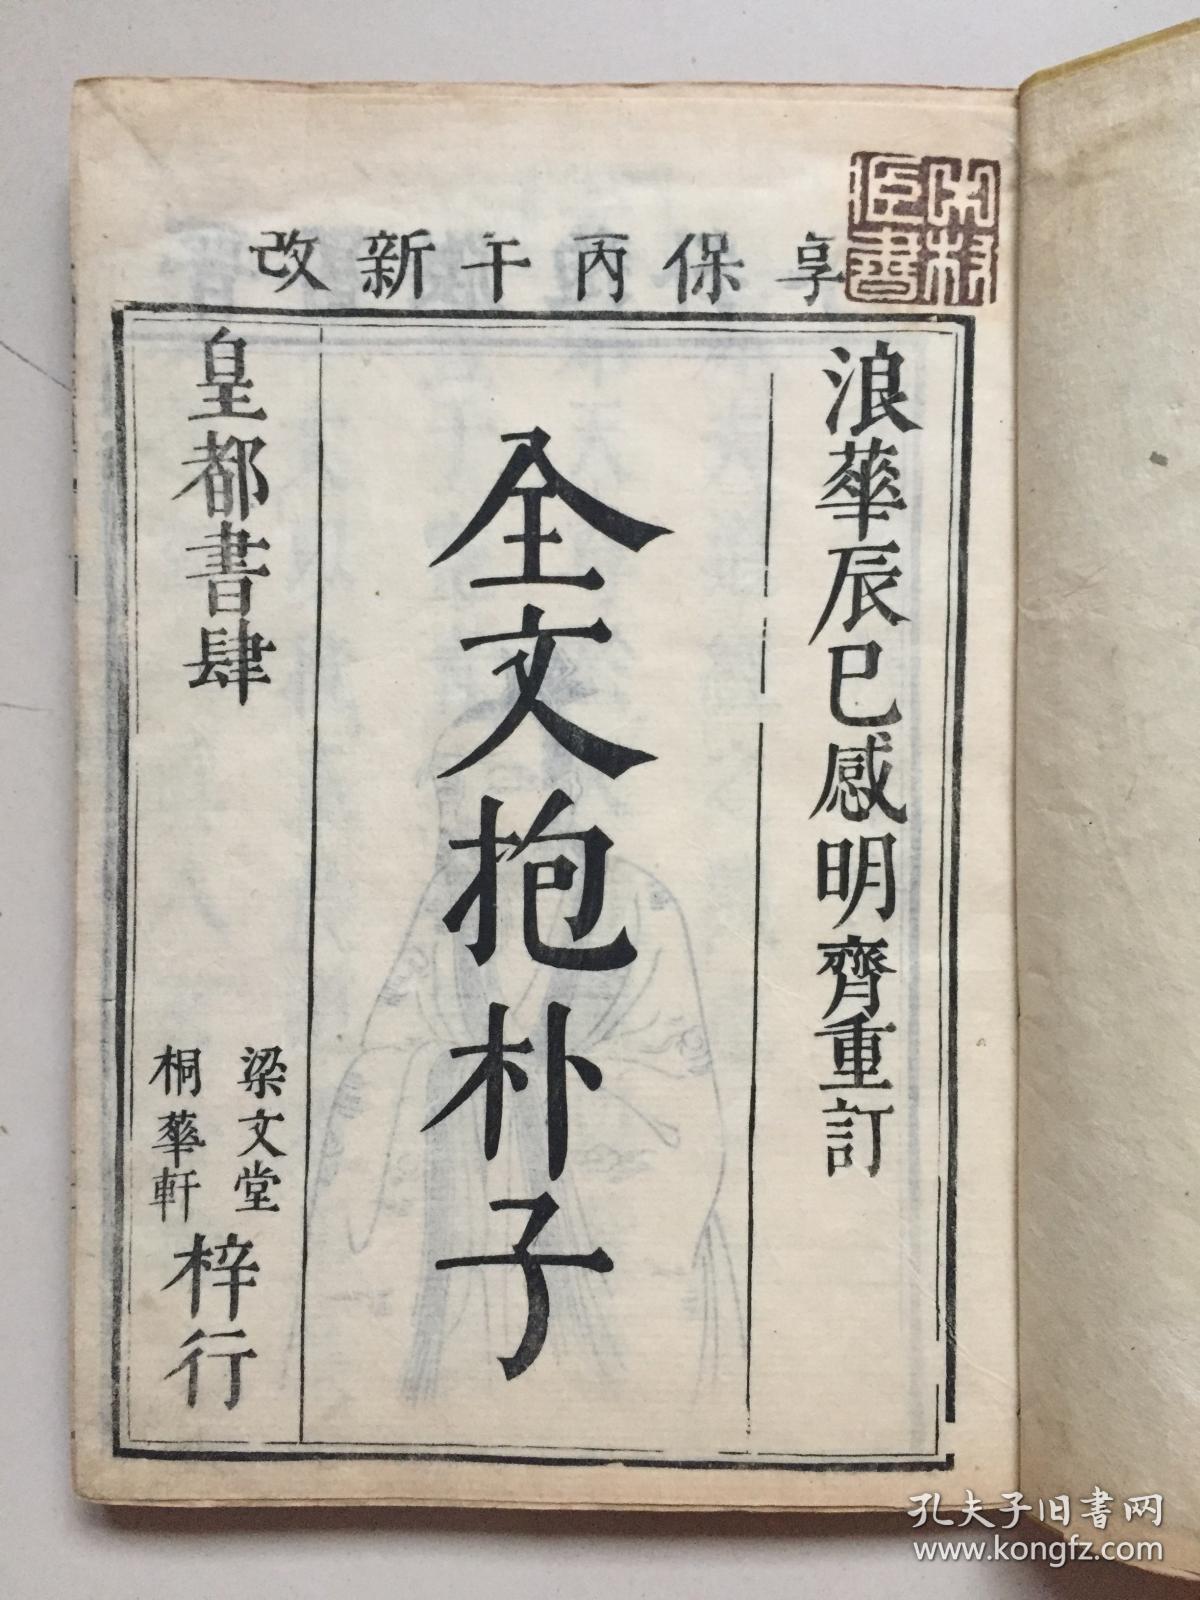 享保丙午新改
浪華辰巳感明齊重訂
全文抱朴子
皇都書肆
梁文堂
桐華軒
梓行
孔夫子旧书网
www.kongfz.com